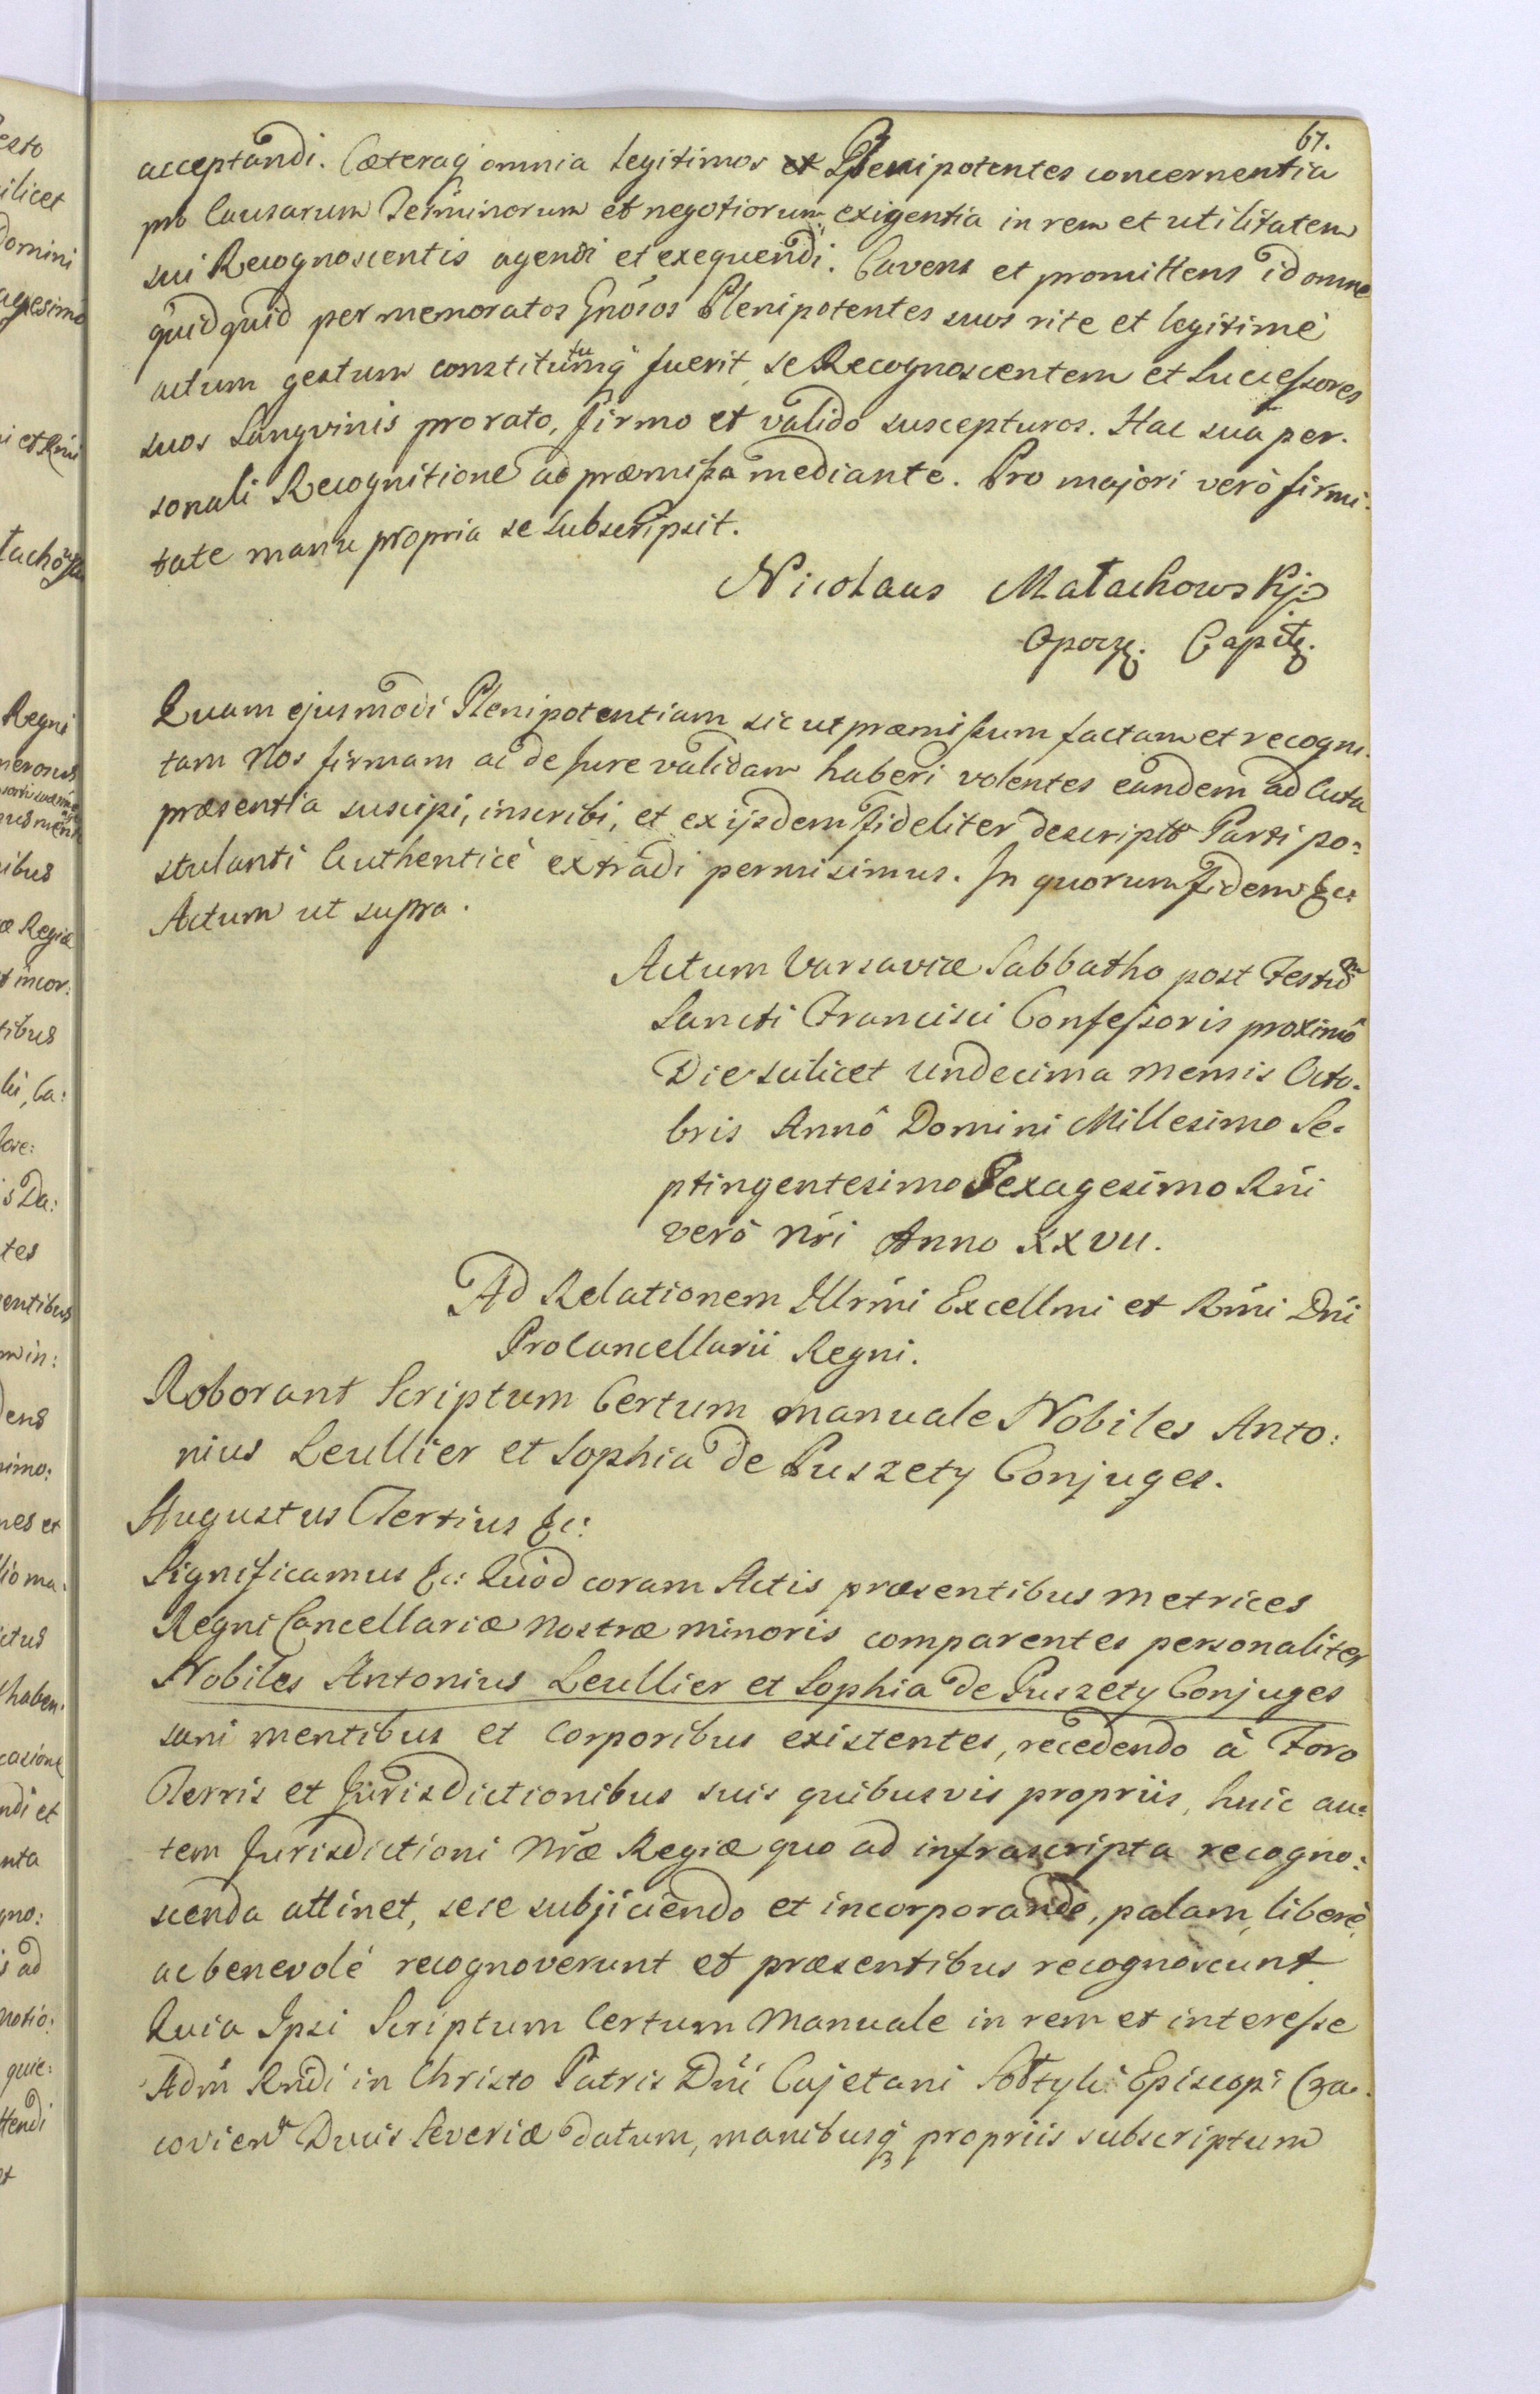 67.
acceptandi. Cæteraq́ omnia legitimos et Plenipotentes concernentia
pro Causarum Terminorum et negotiorum exigentia in rem et utilitatem
sui Recognoscentis agendi et exequendi. Cavens et promittens id omne
quidquid per memoratos Gnosos Plenipotentes suos rite et legitimè
actum gestum constitutumq́ fuerit, se Recognoscentem et Successores
suos Sangvinis pro rato, firmo et valido suscepturos. Hac sua per-
sonali Recognitione ad præmissa mediante. Pro majori verò firmi-
tate manu propria se subscripsit.
Nicolaus Małachowskj
Opocz. Capit.
Quam ejusmodi Plenipotentiam sic ut præmissum factam et recogni-
tam Nos firmam ac de Jure validam haberi volentes eandem ad Acta
præsentia suscipi, inscribi, et ex ijsdem fideliter descripto Parti po:
stulanti Authenticè extradi permisimus. In quorum Fidem &c:
Actum ut supra.
Actum Varsaviæ Sabbatho post Festum
Sancti Francisci Confessoris proximô
Die scilicet undecima mensis Octo-
bris Annô Domini Millesimo Se-
ptingentesimo Sexagesimo Rńi
verò Nri Anno XXVII.
Ad Relationem Illrmi Excellmi et Rmi Dni
ProCancellarii Regni.
Roborant Scriptum Certum manuale Nobiles Anto:
nius Leullier et Sophia de Puszety Conjuges.
Augustus Tertius &c:
Significamus &c: Quòd coram Actis præsentibus Metrices
Regni Cancellariæ Nostræ Minoris comparentes personaliter
Nobiles Antonius Leullier et Sophia de Puszety Conjuges
sani mentibus et Corporibus existentes, recedendo à Foro
Terris et Jurisdictionibus suis quibusvis propriis, huic au:
tem Jurisdictioni Nrae Regiæ quo ad infrascripta recogno:
scenda attinet, sese subjiciendo et incorporando, palam, liberè,
ac benevolè recognoverunt et præsentibus recognoscunt
Quia Ipsi Scriptum Certum Manuale in rem et interesse
Adm Rndi in Christo Patris Dni Cajetani Sołtyk Episcopi Cra-
covien Ducis Severiæ datum, manibusq́ propriis subscriptum